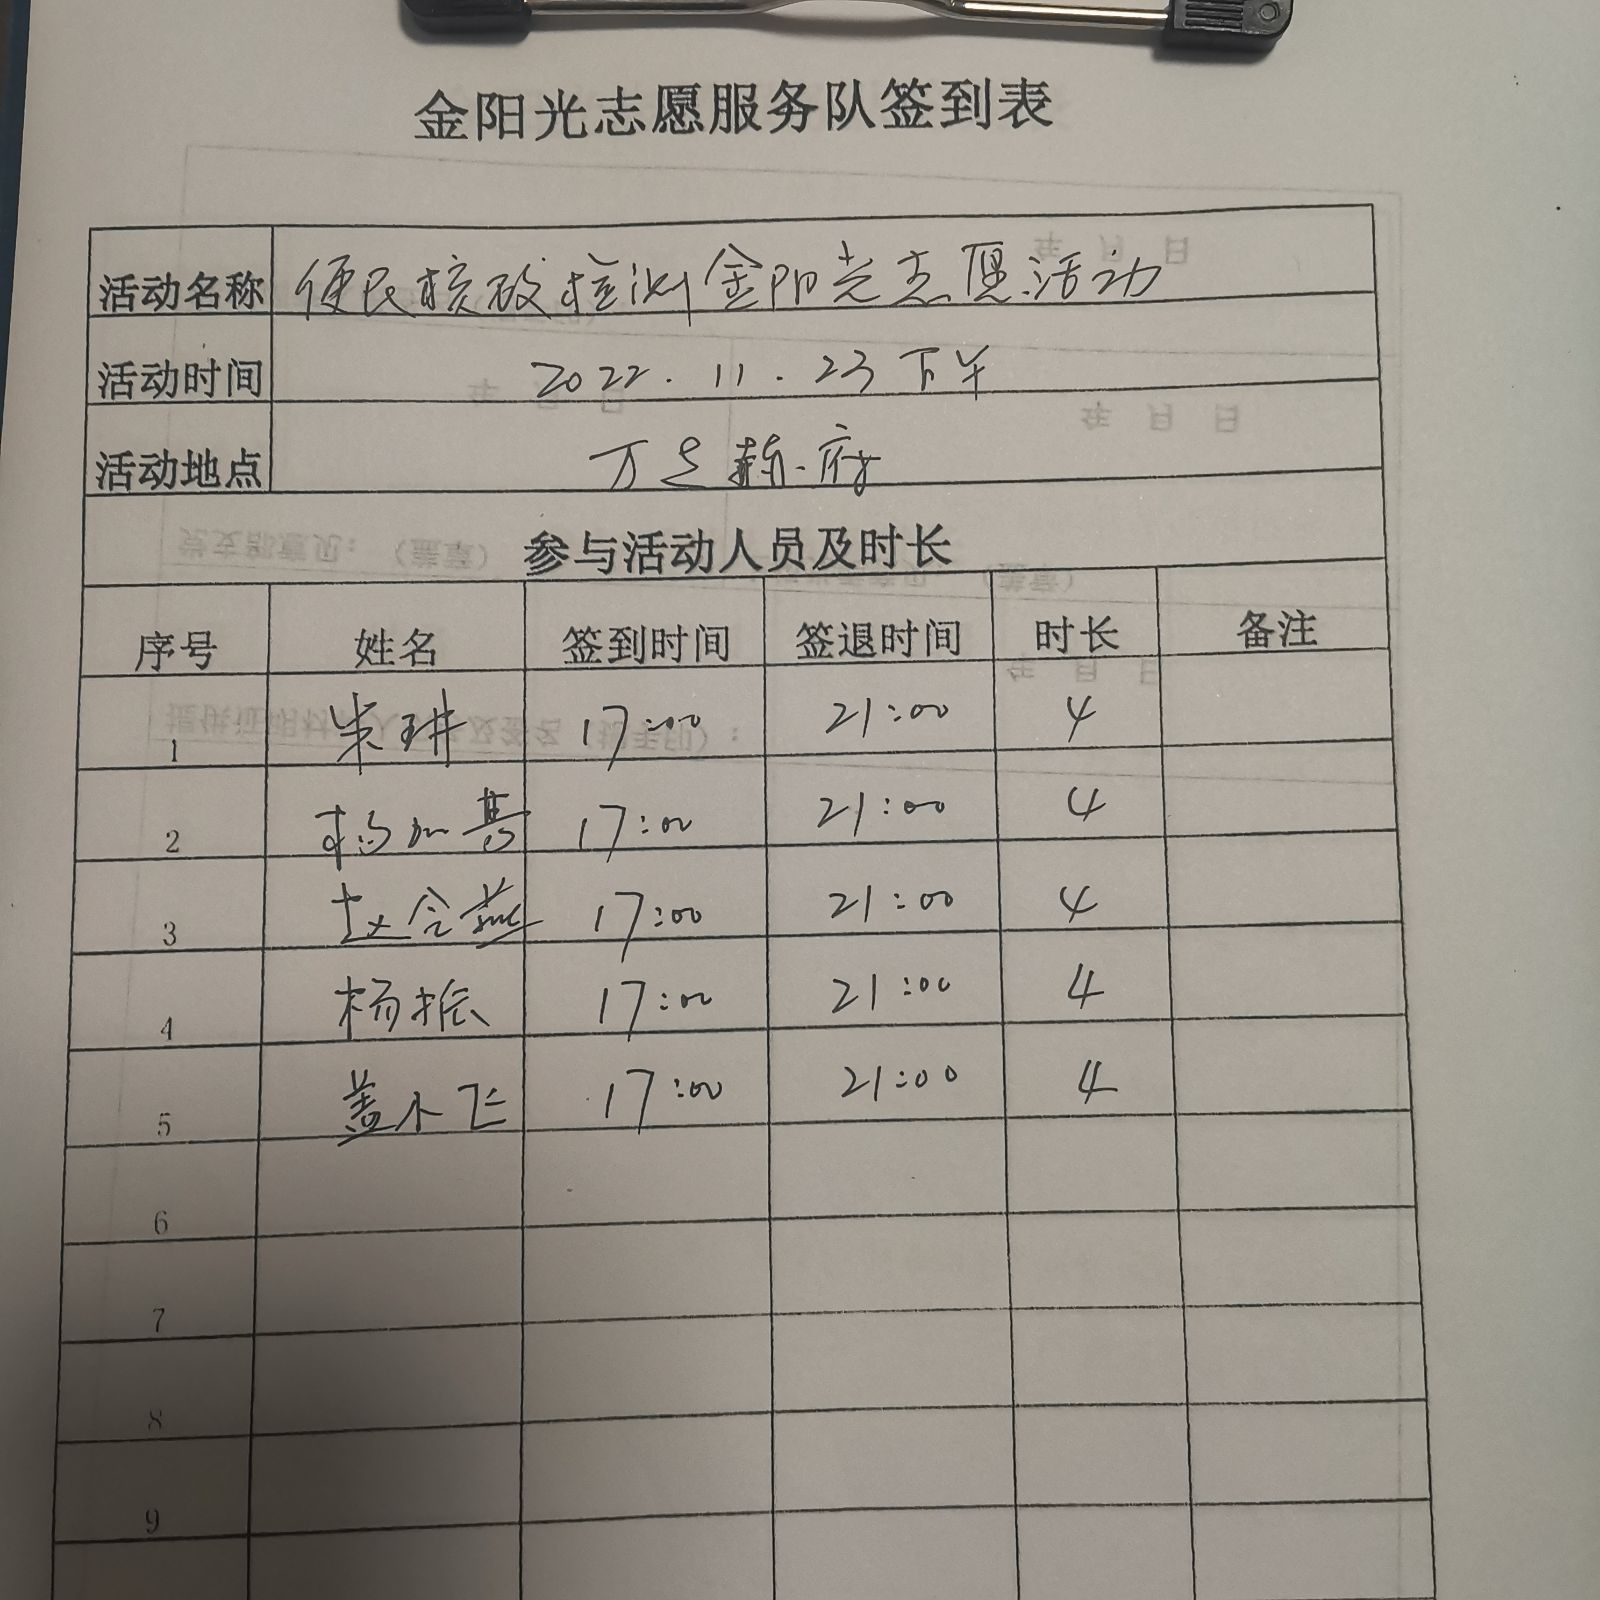 金阳光志愿服务队签到表
活动名称 便民核酸检测金阳光志愿活动
活动时间 2022.11.23下午
活动地点 万 府
参与活动人员及时长
序号 姓名 签到时间 签退时间 时长 备注
1 朱琳 17:00 21:00 4
2 杨 17:00 21:00 4
3 赵含燕 17:00 21:00 4
4 杨振 17:00 21:00 4
5 盖小飞 17:00 21:00 4
6
7
8
9